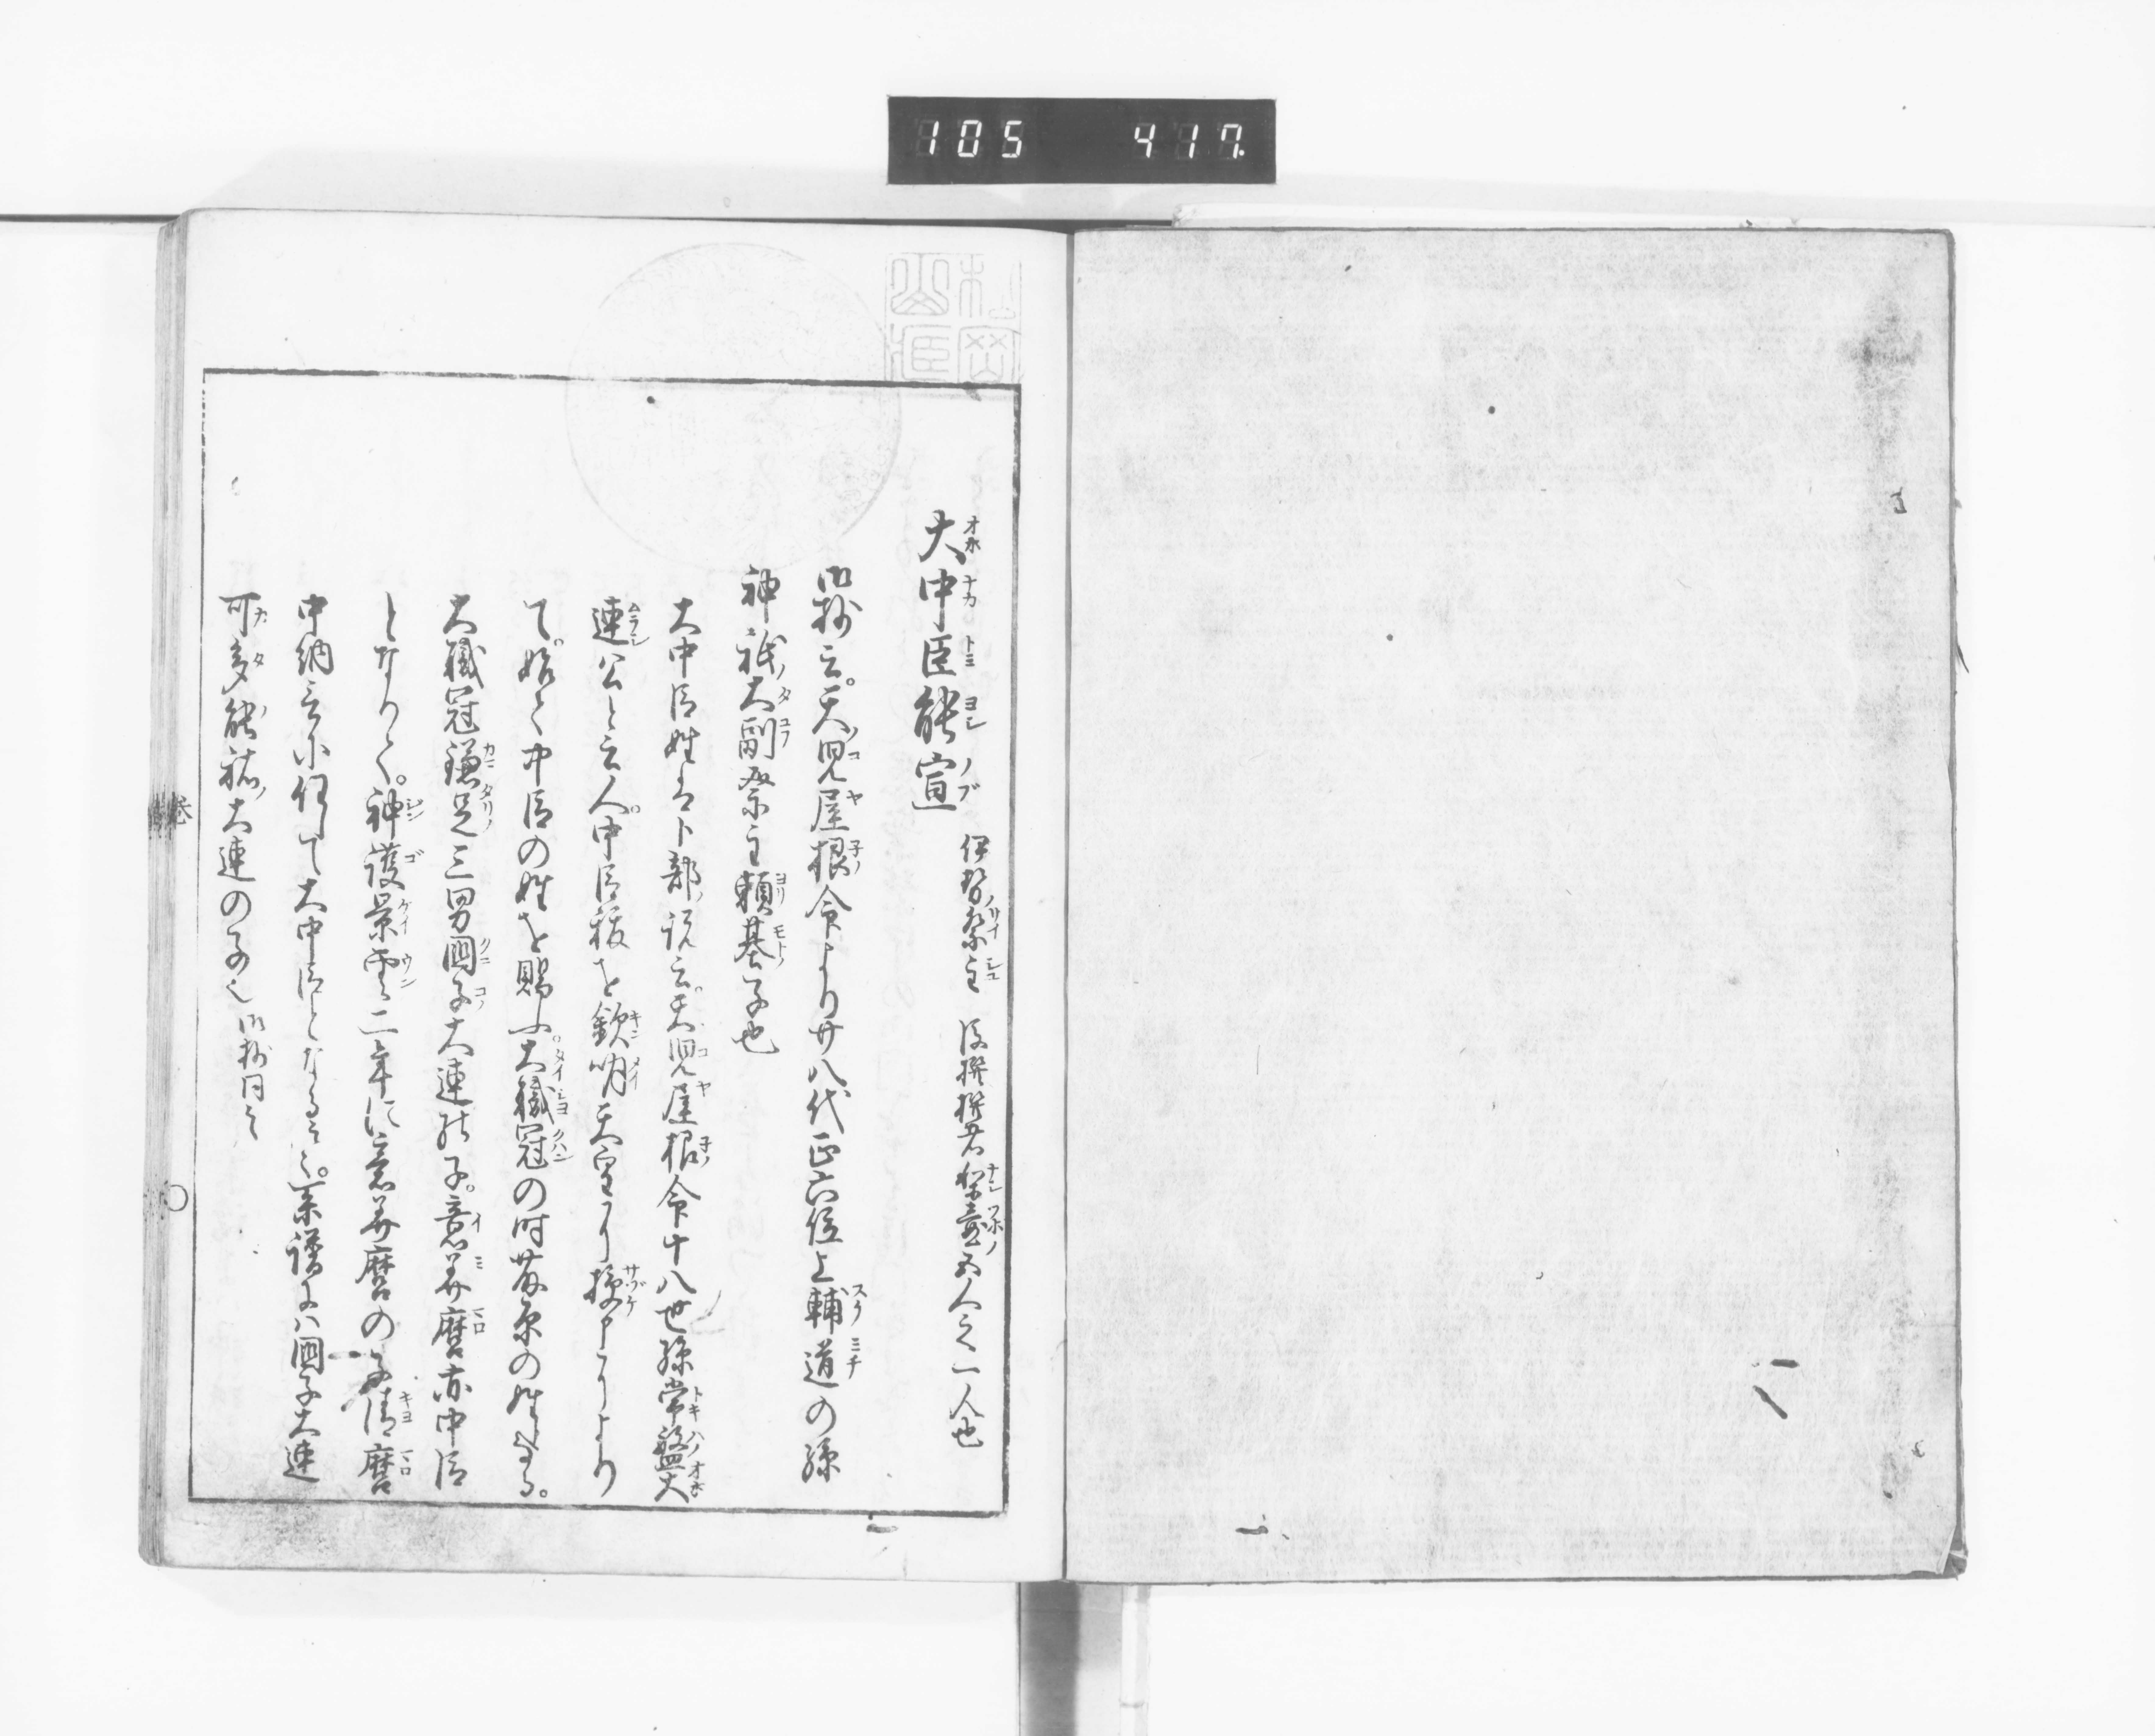 105 417
大中臣能宣 伊勢祭主 後撰撰者梨壺五人之一人也
御抄云。天児屋根命より廿八代正六位上輔道の孫
神祇大副祭主頼基子也
大中臣姓ハ卜部説云。天児屋根命十八世孫常盤大
連公と云人。中臣祓を欽明天皇より授
て。始て中臣の姓を賜ふ。大織冠の時藤原の姓
大織冠鎌足三男國子大連の子。意美麿亦中臣
となりて。神護景雲二年に意美麿の子清麿
中納言に任て大中臣となる 系譜には國子大連
可多能祐大連の子也 御抄同之